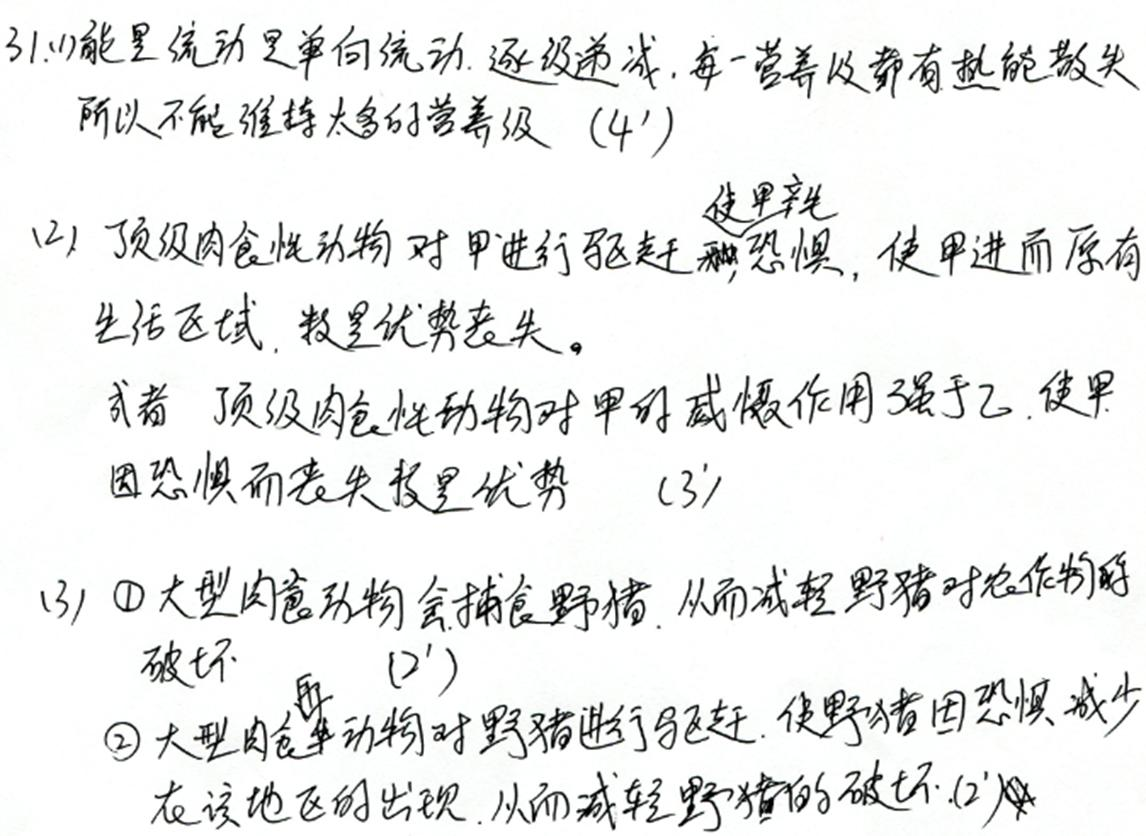 31.(1)能量流动是单向流动.逐级递减.每一营养级都有热能散失
所以不能维持太多的营养级 (4')
使甲产生
(2) 顶级肉食性动物对甲进行驱赶,恐惧,使甲进而原有
生活区域,数量优势丧失。
或者 顶级肉食性动物对甲的威慑作用强于乙.使甲
因恐惧而丧失数量优势 (3')
(3) ①大型肉食动物会捕食野猪.从而减轻野猪对农作物
破坏 (2')
②大型肉食动物对野猪进行驱赶.使野猪因恐惧减少
在该地区的出现.从而减轻野猪的破坏.(2')